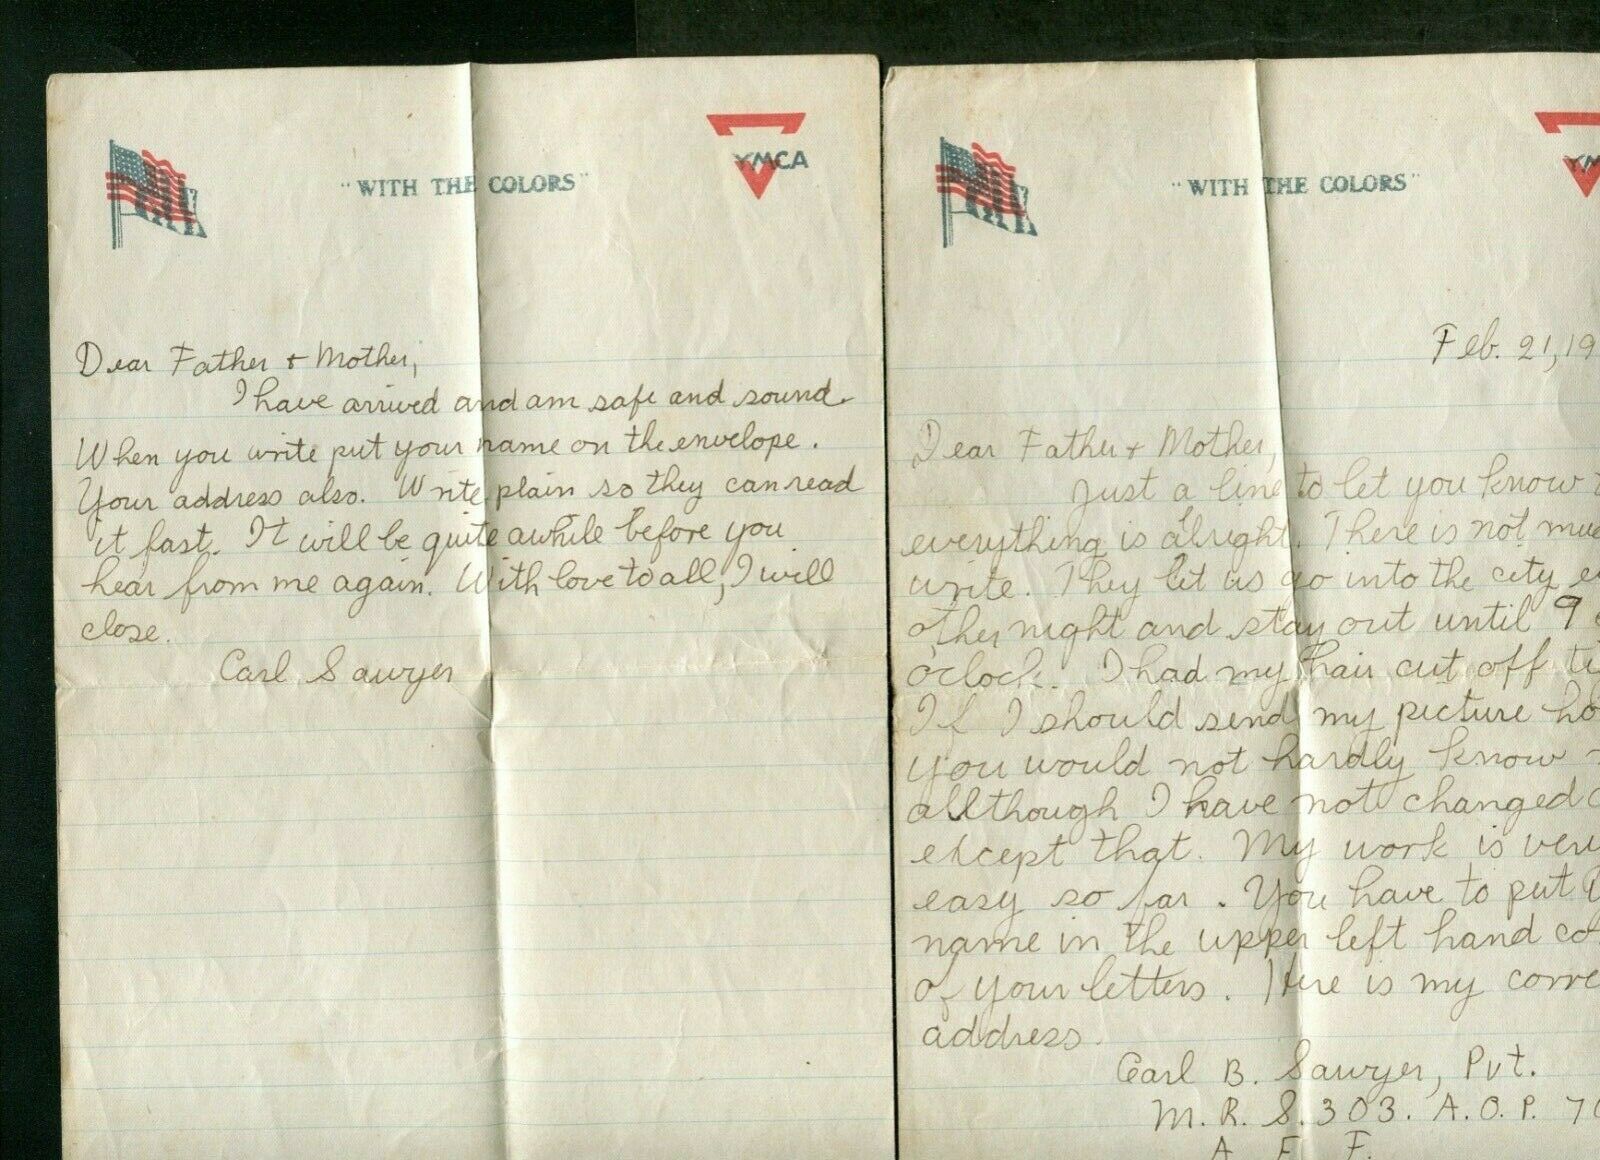 "WITH THE COLORS"
YMCA
Dear Father + Mother,
I have arrived and am safe and sound.
When you write put your name on the envelope.
Your address also. Write plain so they can read
it fast. It will be quite awhile before you
hear from me again. With love to all, I will
close.
Carl Sawyer
"WITH THE COLORS"
YM
Feb. 21, 19
Dear Father + Mother,
Just a line to let you know
everything is alright. There is not muc
write. They let us go into the city e
other night and stay out until 9
oclock. I had my hair cut off
If I should send my picture ho
you would not hardly know
allthough I have not changed
except that. My work is very
easy so far. You have to put
name in the upper left hand co
of your letters. Here is my corre
address.
Carl B. Sawyer, Pvt.
M. R. S. 303. A. O. P. 7
A. E. F.